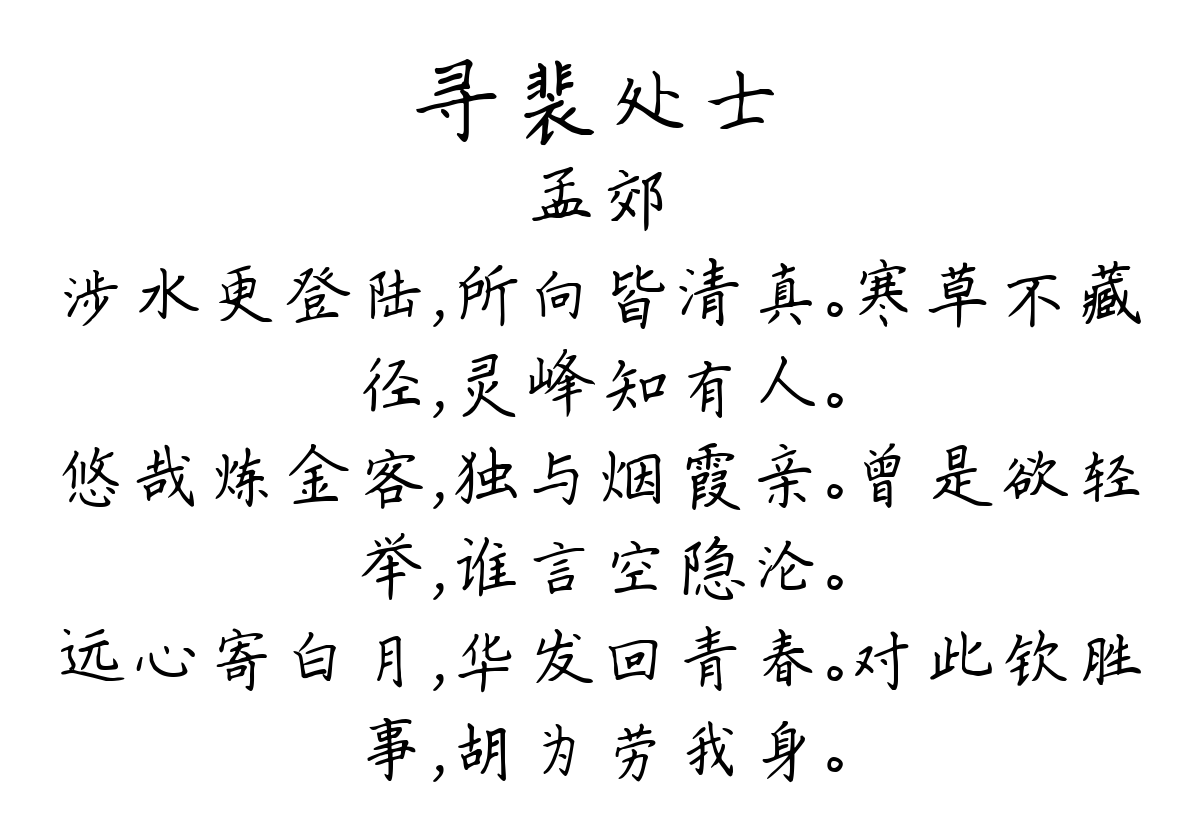 寻裴处士
孟郊
涉水更登陆,所向皆清真。寒草不藏
径,灵峰知有人。
悠哉炼金客,独与烟霞亲。曾是欲轻
举,谁言空隐沦。
远心寄白月,华发回青春。对此钦胜
事,胡为劳我身。